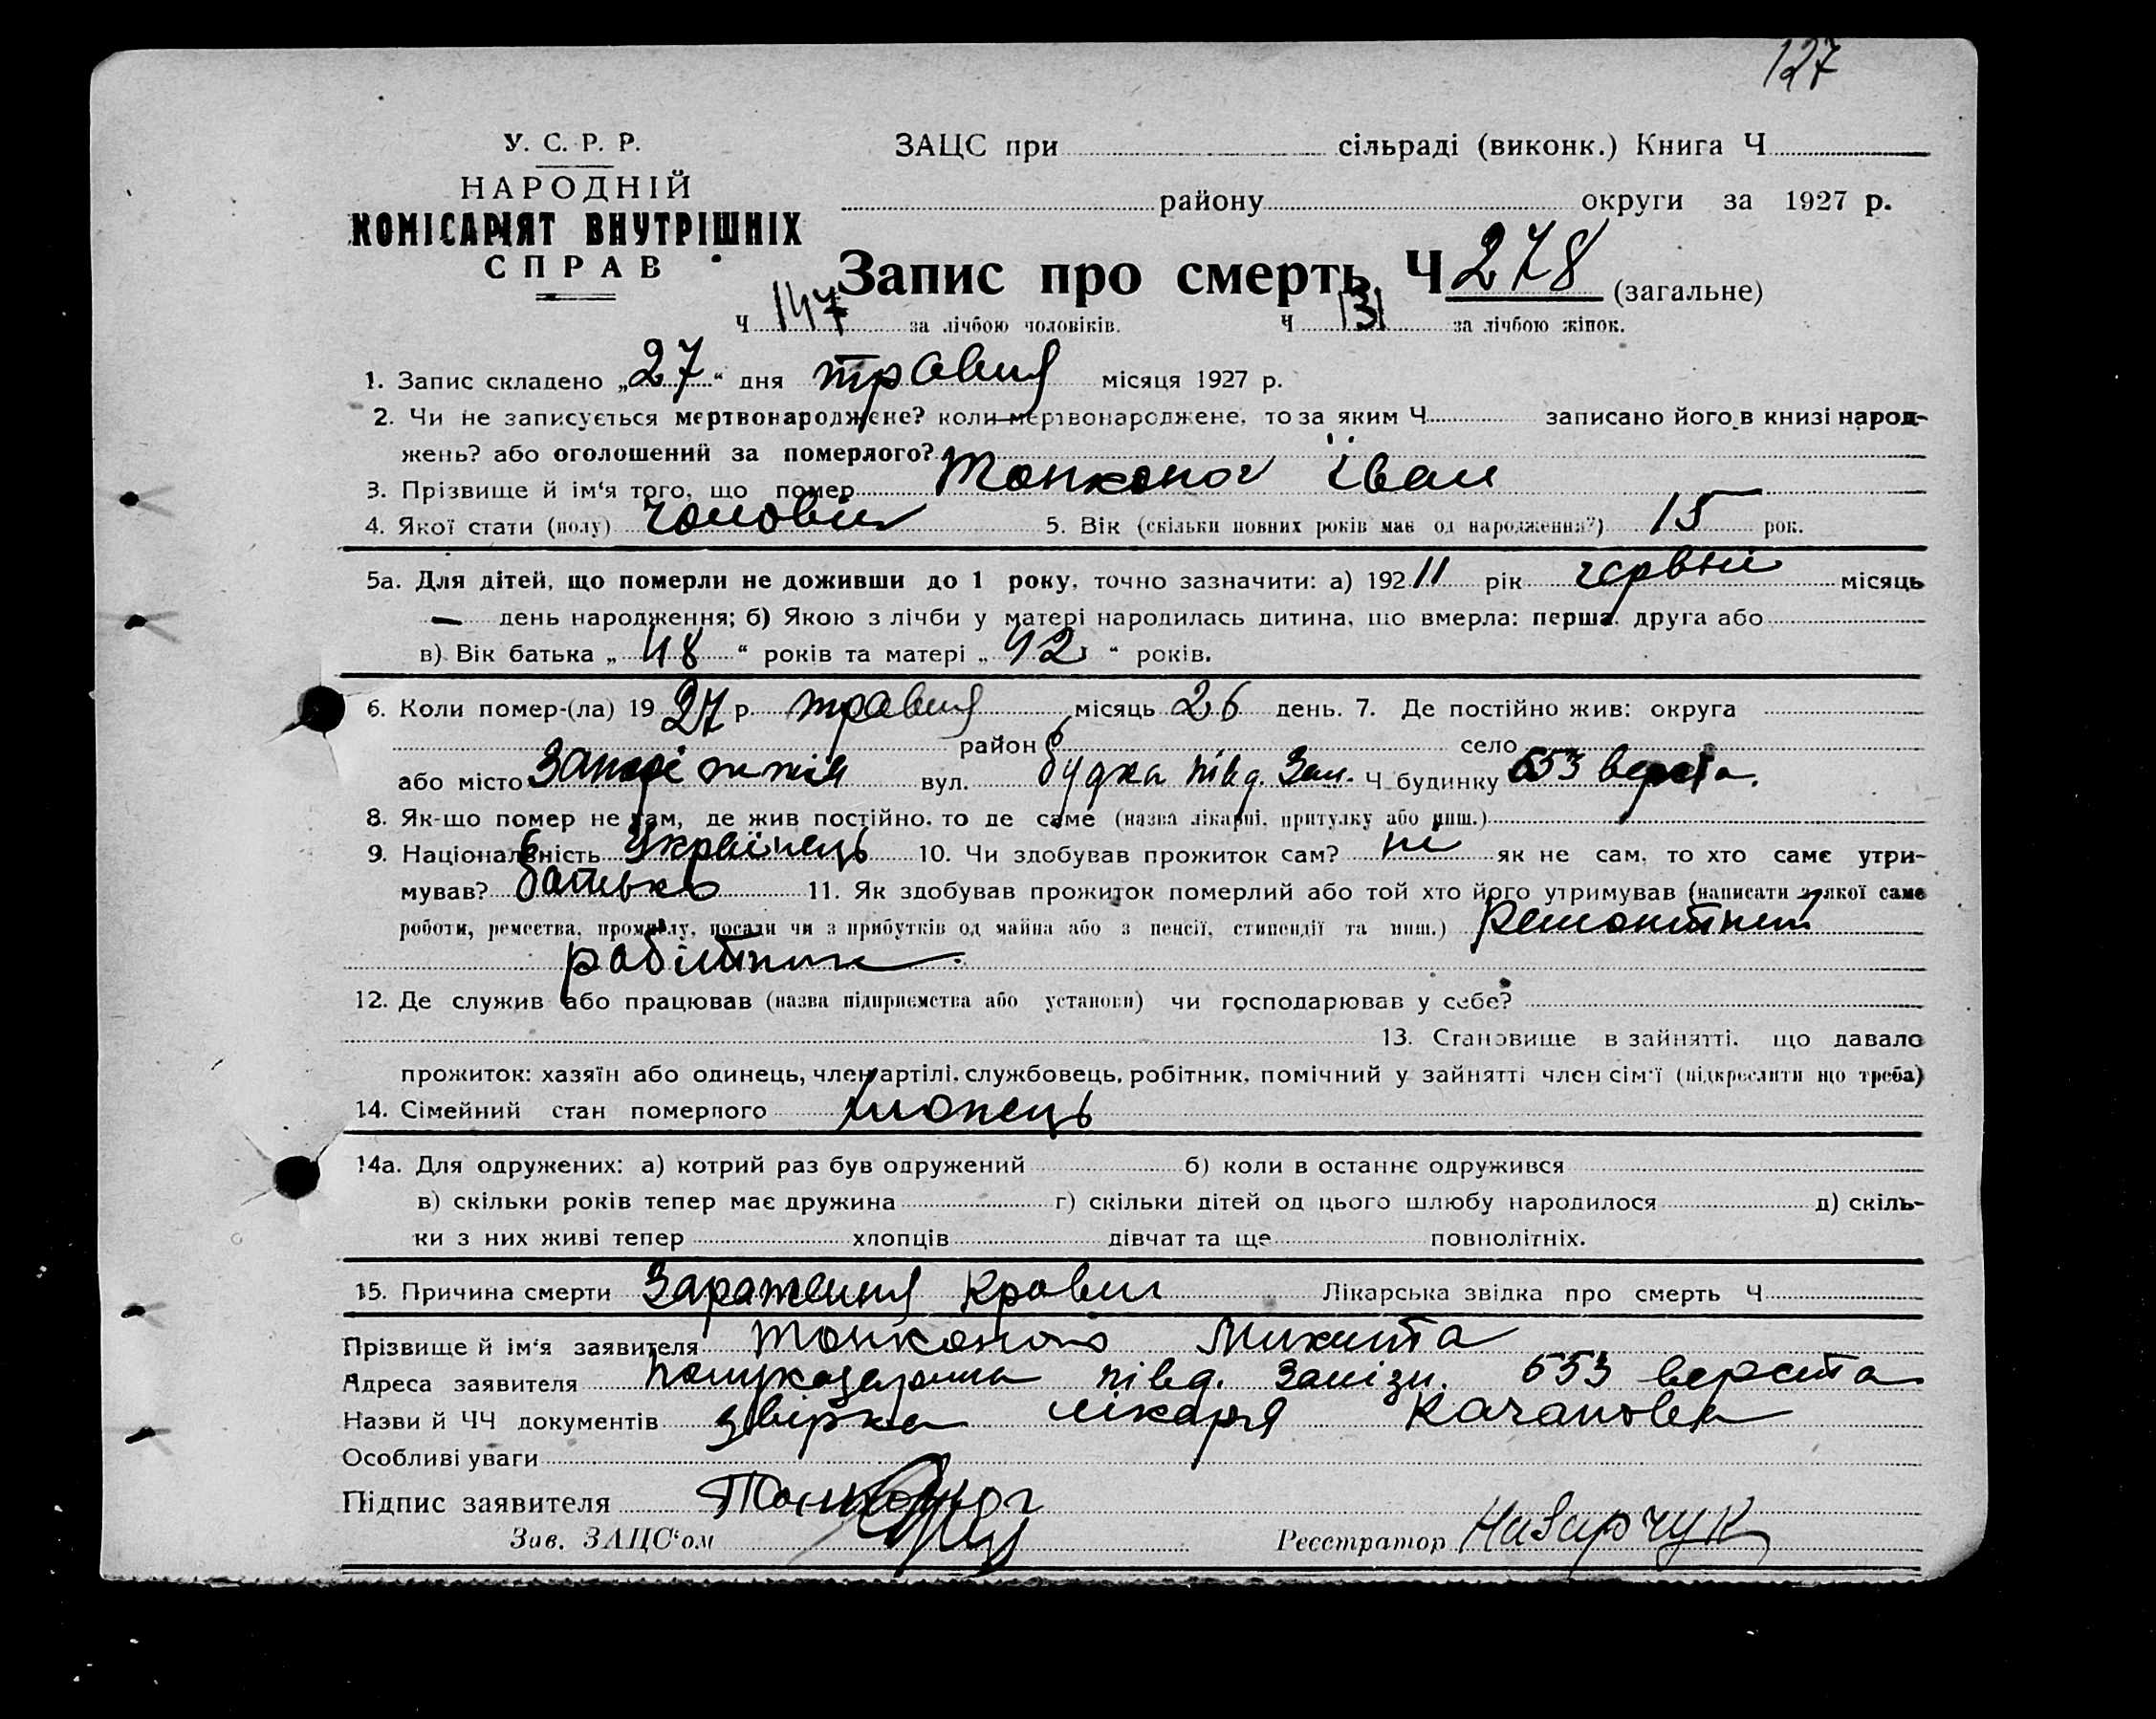 127
У. С. Р. Р.
НАРОДНІЙ
КОМІСАРІЯТ ВНУТРІШНІХ
СПРАВ
ЗАЦС при сільраді (виконк.) Книга Ч
району округи за 1927 р.
Запис про смерть Ч 278 (загальне)
Ч 147 за лічбою чоловіків. Ч 131 за лічбою жінок.
1. Запис складено „27“ дня травня місяця 1927 р.
2. Чи не записується мертвонароджене? коли мертвонароджене, то за яким Ч записано його в книзі народ-
жень? або оголошений за померлого?
3. Прізвище й ім‘я того, що помер Тонконог Іван
4. Якої стати (полу) чоловіч 5. Вік (скільки повних років має од народження?) 15 рок.
5а. Для дітей, що померли не доживши до 1 року, точно зазначити: а) 192 11 рік червні місяць
— день народження; б) Якою з лічби у матері народилась дитина, що вмерла: перша, друга або
в) Вік батька „48“ років та матері „42“ років.
6. Коли помер-(ла) 1927 р. травня місяць 26 день. 7. Де постійно жив: округа
район село
або місто Запоріжжя вул. будка півд. Зал. Ч будинку 653 верста.
8. Як-що помер не там, де жив постійно, то де саме (назва лікарні, притулку або инш.)
9. Національність Українець 10. Чи здобував прожиток сам? ні як не сам, то хто саме утри-
мував? батько 11. Як здобував прожиток померлий або той хто його утримував (написати з якої саме
роботи, ремества, промислу, посади чи з прибутків од майна або з пенсії, стипендії та инш.) Ремонтний
робітник.
12. Де служив або працював (назва підприємства або установи) чи господарював у себе?
13. Становище в зайнятті, що давало
прожиток: хазяїн або одинець, член артілі, службовець, робітник, помічний у зайнятті член сім‘ї (підкреслити що треба)
14. Сімейний стан померлого хлопець
14а. Для одружених: а) котрий раз був одружений б) коли в останнє одружився
в) скільки років тепер має дружина г) скільки дітей од цього шлюбу народилося д) скіль-
ки з них живі тепер хлопців дівчат та ще повнолітніх.
15. Причина смерти Зараження крови Лікарська звідка про смерть Ч
Прізвище й ім‘я заявителя Тонконог Микита
Адреса заявителя полуказарма півд. Залізн. 653 верста
Назви й ЧЧ документів звірка лікаря Качанова
Особливі уваги
Підпис заявителя Тонконог
Зав. ЗАЦС‘ом
Реєстратор Назарчук